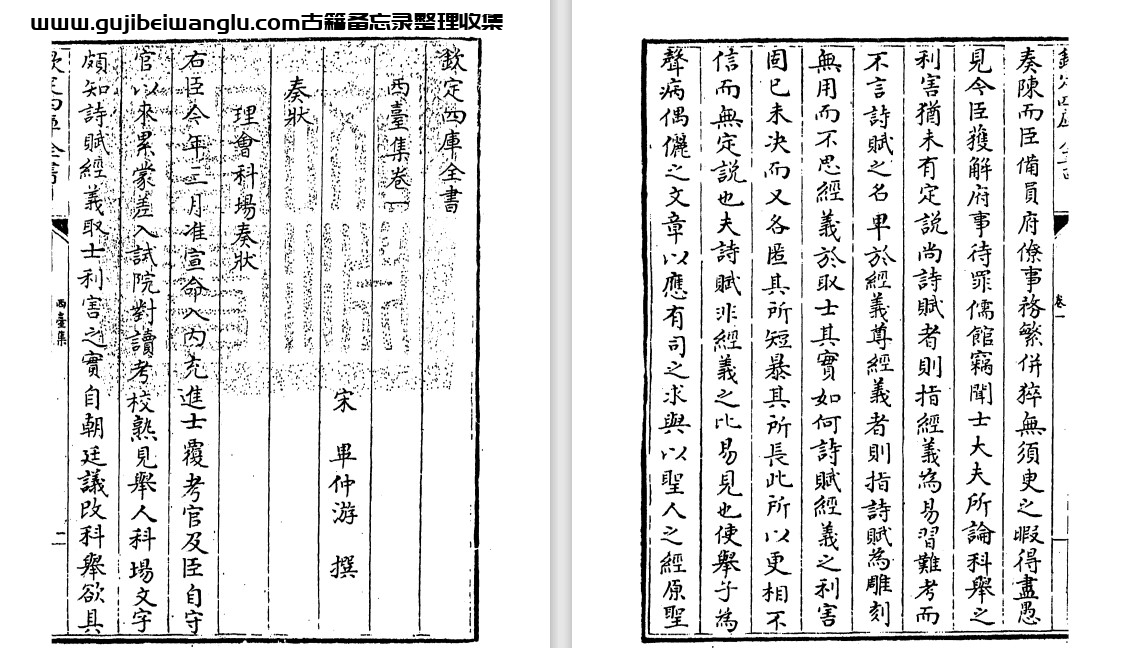 www.gujibeiwanglu.com古籍备忘录整理收集
欽定四庫全書
西臺集卷一
宋 畢仲游 撰
奏狀
理會科場奏狀
右臣今年三月准宣命入内充進士覆考官及臣自守
官以來累蒙差入試院對讀考校熟見舉人科場文字
頗知詩賦經義取士利害之實自朝廷議改科舉欲具
西臺集
二
奏陳而臣備員府僚事務繁併猝無須臾之暇得盡愚
見今臣獲解府事待罪儒館竊聞士大夫所論科舉之
利害猶未有定説尚詩賦者則指經義為易習難考而
不言詩賦之名卑於經義尊經義者則指詩賦為雕刻
無用而不思經義於取士其實如何詩賦經義之利害
固已未决而又各匿其所短暴其所長此所以更相不
信而無定説也夫詩賦非經義之比易見也使舉子為
聲病偶儷之文章以應有司之求與以聖人之經原聖
卷一